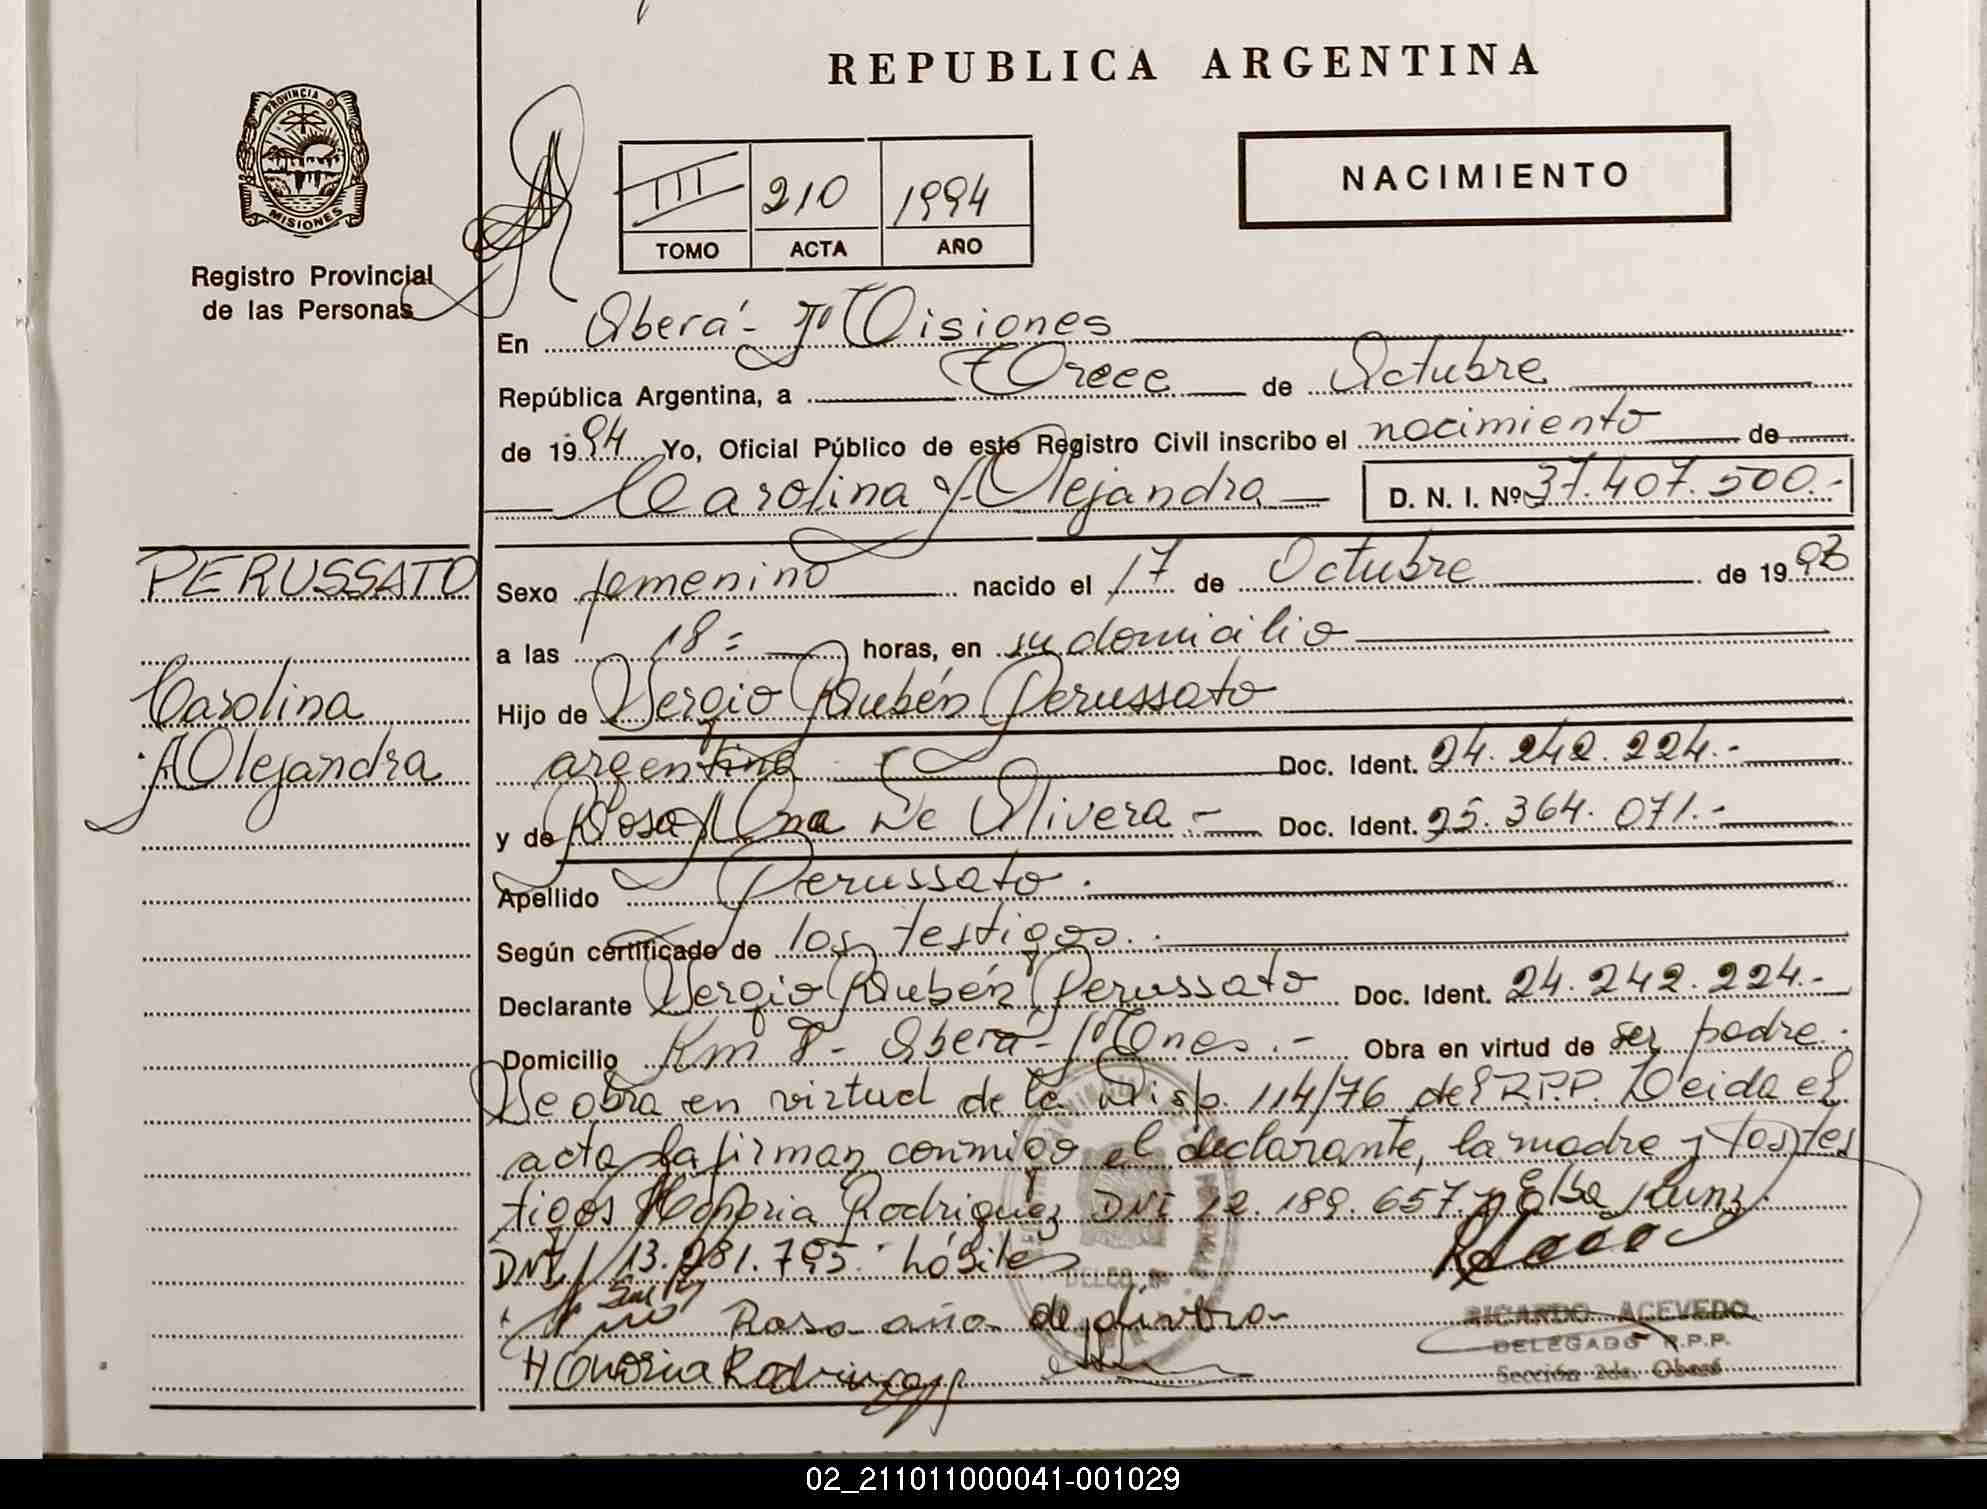 REPUBLICA ARGENTINA
PROVINCIA DE
MISIONES
Registro Provincial
de las Personas
III 210 1994
TOMO ACTA AÑO
NACIMIENTO
En Oberá - Misiones
República Argentina, a Trece de Octubre
de 1994 Yo, Oficial Público de este Registro Civil inscribo el nacimiento de
Carolina Alejandra D. N. I. Nº 37.407.500.-
PERUSSATO
Carolina
Alejandra
Sexo femenino nacido el 17 de Octubre de 1993
a las 18= horas, en su domicilio
Hijo de Sergio Rubén Perussato
argentino Doc. Ident. 24.242.224.-
y de Rosa Ana De Olivera.- Doc. Ident. 25.364.071.-
Apellido Perussato.
Según certificado de los testigos.
Declarante Sergio Rubén Perussato Doc. Ident. 24.242.224.-
Domicilio Km 8 - Oberá - Mnes.- Obra en virtud de ser padre.
Se obra en virtud de la Disp. 114/76 del R.P.P. Leida el
acta la firman conmigo el declarante, la madre y los tes
tigos Honoria Rodriguez DNI 12.189.657 y Elsa Kunz
DNI 13.281.795. hábiles
Rosa ana de olivera
Honoria Rodriguez
RICARDO ACEVEDO
DELEGADO R.P.P.
Sección 2da. Oberá
02_211011000041-001029